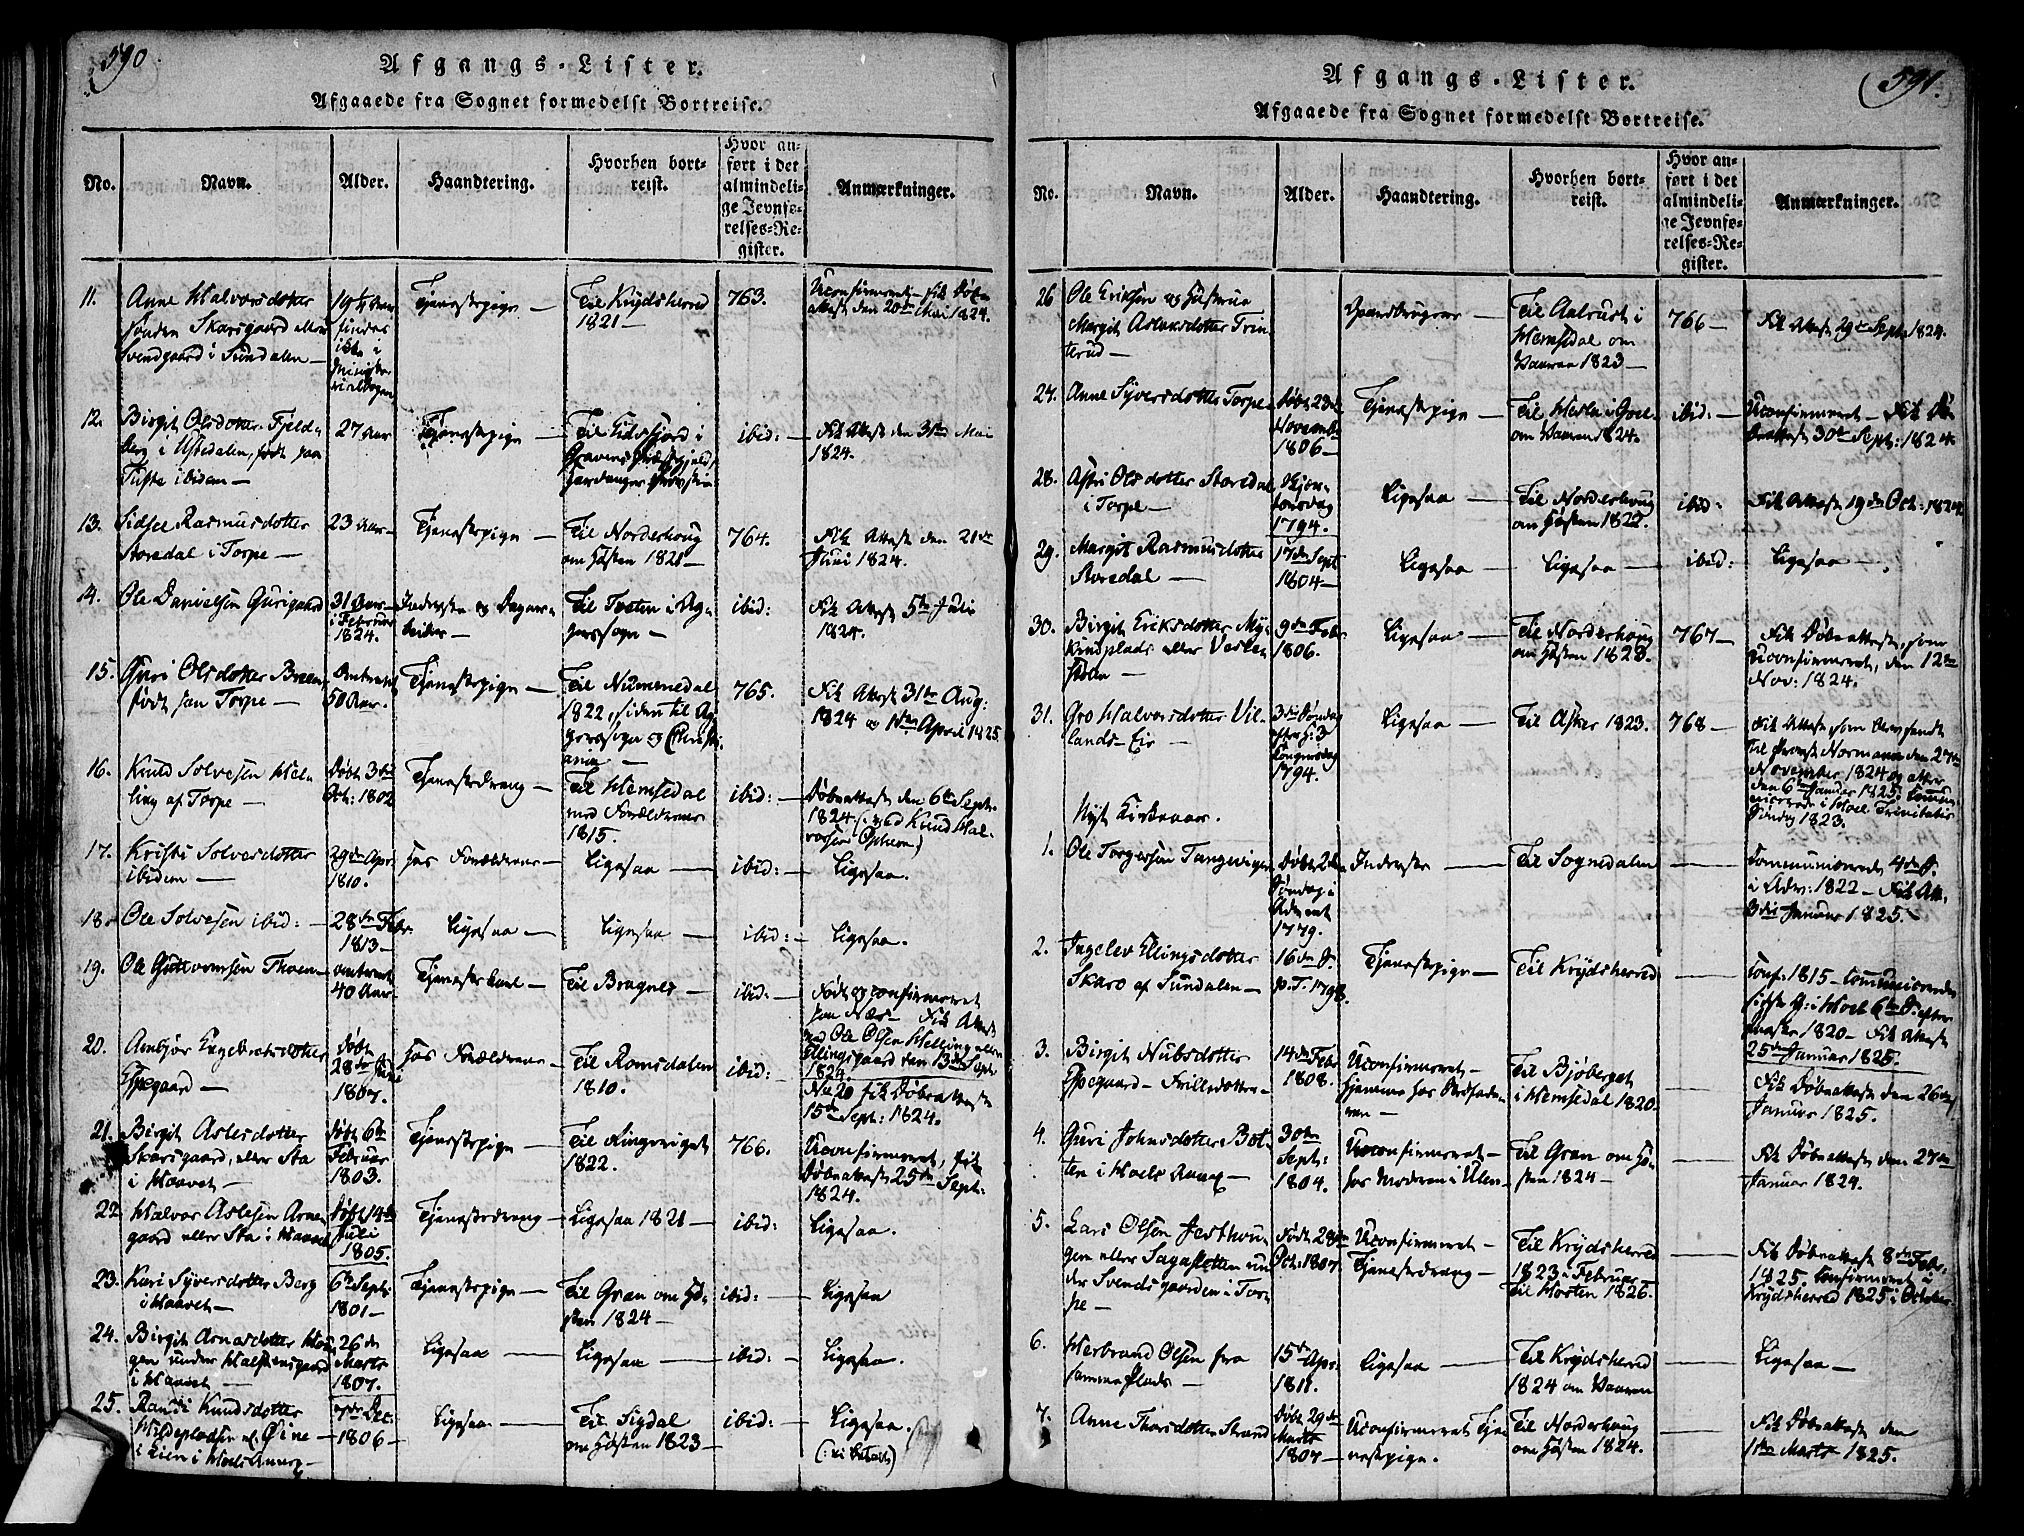 590
Afgangs-Lister.
Afgaaede fra Sognet formedelst Bortreise.
No. Navn. Alder. Haandtering. Hvorhen bortreist. Hvor anført i det almindelige Jevnførelses-Register. Anmærkninger.
11. Anne Halvorsdotter Skarsgaard eller Svendgaard i Sundalen — 19 Aar findes ikke i Ministerialbogen Tjenestepige — Til Krydsherred 1821 — 763. Uconfirmeret — Fik Døbeattest den 20de Mai 1824.
12. Birgit Olsdotter Fjeldberg i Ustedalen, født paa Tufte ibidem — 27 Aar Tjenestepige — Til Eidsfjord i Gravens Præstegjeld, Hardanger Provstie ibid: — Fik Attest den 31te Mai 1824.
13. Sidsel Rasmusdotter Storedal i Torpe — 23 Aar — Tjenestepige — Til Norderhoug om Høsten 1821 — 764. Fik Attest den 21de Juni 1824.
14. Ole Danielsen Gurigaard 31 Aar i Februar 1824. Inderste og Dagarbeider — Til Tveten i Aggerssogn — ibid: Fik Attest 5te Juli 1824.
15. Guri Olsdotter født paa Torpe — Omtrent 50 Aar. Tjenestepige — Til Nummedal 1822, siden til Aggerssogn og Christiania — 765. Fik Attest 31te Aug: 1824 og 1ste April 1825
16. Knud Solvesen Helling af Torpe — Døbt 3die Oct: 1802 Tjenestedreng — Til Hemsedal med Forældrene 1815. ibid: — Døbeattest den 6te Sept: 1824 (: ved Knud Halvorsen Opheim)
17. Kristi Solvesdotter ibidem — 29de Apr: 1810. hos Forældrene — Ligesaa — ibid: — Ligesaa.
18. Ole Solvesen ibid: — 28de Febr. 1813 — Ligesaa — Ligesaa — ibid: — Ligesaa.
19. Ole Guttormsen Thoen — omtrent 40 Aar Tjenestekarl — Til Bragnes — ibid: — Født og confirmeret paa Næs — Fik Attest med Ole Olsen Helling eller Ellingsgaard den 13de Sept: 1824
20. Ambjør Engebretsdotter Espegaard — Døbt 28de Juni 1807. hos Forældrene — Til Romsdalen 1810. ibid: — No 20 fik Døbeattest 15de Sept: 1824.
21. Birgit Aslesdotter Skarsgaard, eller Sta i Haavet — Døbt 6te Februar 1803. Tjenestepige — Til Ringeriget 1822. 766. Uconfirmeret, fik Døbeattest 25de Sept: 1824.
22 Halvor Aslesen gaard eller Sta i Haavet Døbt 14de Juli 1805. Tjenestedreng — Ligesaa 1821 — ibid: — Ligesaa.
23. Kari Syversdotter Berg i Haavet — 6te Sept: 1801 — Tjenestepige — Til Gran om Høsten 1824 — ibid: — Ligesaa
24. Birgit Arnesdotter Haugen under Halstensgaard i Haavet — 26de Marts 1807. Ligesaa — Ligesaa — ibid: — Ligesaa.
25. Randi Knudsdotter Øine — i Eien i Hols Annex — 7de Dec: 1806 — Ligesaa — Til Sigdal om Høsten 1823 — ibid: — Ligesaa.
591.
Afgangs-Lister.
Afgaaede fra Sognet formedelst Bortreise.
No. Navn. Alder. Haandtering. Hvorhen bortreist. Hvor anført i det almindelige Jevnførelses-Register. Anmærkninger.
26 Ole Eriksen og Hustrue Margit Aslaksdotter Trinterud — Gaardbruger — Til Aalrust i Hemsedal om Vaaren 1823 — 766 — Fik Attest 29de Sept: 1824.
27. Anne Syversdotter Torpe — Døbt 23de November 1806 — Tjenestepige — Til Hesla i Goel om Vaaren 1824. ibid: — Uconfirmeret — Fik Døbeattest 30te Sept: 1824.
28. Astri Olsdotter Storedal i Torpe — Skjærtorsdag 1794. Ligesaa — Til Norderhoug om Høsten 1822. ibid: Fik Attest 19de Oct: 1824
29. Margit Rasmusdotter Storedal — 17de Sept 1804 — Ligesaa — Ligesaa — ibid: Ligesaa —
30. Birgit Eriksdotter Mykingplads eller — 9de Febr. 1806. Ligesaa — Til Norderhoug om Høsten 1823. 767 — Fik Døbeattest, som Uconfirmeret, den 12te Nov: 1824.
31. Gro Halvorsdotter Villands-Eie — 3die Søndag efter H: 3 Kongersdag 1794. Ligesaa — Til Asker 1823. 768 — Fik Attest som oversendt til Provst Normann den 27de November 1824 og atter den 6te Januar 1825. Communicerede i Hoel Trinitatis Søndag 1823.
Nyt Kirkeaar.
1. Ole Torgersen Tangevigen Døbt 2den Søndag i Advent 1779. Inderste — Til Sognedalen — Communicerede 4de S. i Adv: 1822 — Fik Att. 3die Januar 1825.
2. Ingelev Ellingsdotter Skaro af Sundalen — 16de S. p. T. 1798. Tjenestepige — Til Krydsherred — Conf. 1815 — Communicerede sidste G: i Hoel 6te S. efter Paaske 1820 — Fik Attest 25de Januar 1825.
3. Birgit Nubsdotter Espegaard — — 14de Febr 1808. Uconfirmeret — hjemme hos Bedstefaderen — Til Bjøberget i Hemsedal 1820. — Fik Døbeattest den 26de Januar 1825.
4. Guri Johnsdotter Botten i Hoels Annex — 30te Sept: 1804. Uconfirmeret — hos Moderen i Ulen — Til Gran om Høsten 1824 — Fik Døbeattest den 27de Januar 1824.
5. Lars Olsen Jesthougen eller Sagasletten under Svendsgaarden i Torpe — Født 28de Oct: 1807 Uconfirmeret — Tjenestedreng — Til Krydsherred 1823 i Februar Til Horten 1826. — Fik Døbeattest 8de Febr: 1825. Confirmeret i Krydsherred 1825 i October
6. Herbrand Olsen fra samme Plads — 15de Apr. 1811. Ligesaa — Til Krydsherred 1824 om Vaaren — Ligesaa —
7. Anne Thorsdotter Strand Døbt 29de Marts 1807 — Uconfirmeret Tjenestepige. Til Norderhoug om Høsten 1824. — Fik Døbeattest den 11te Marts 1825.